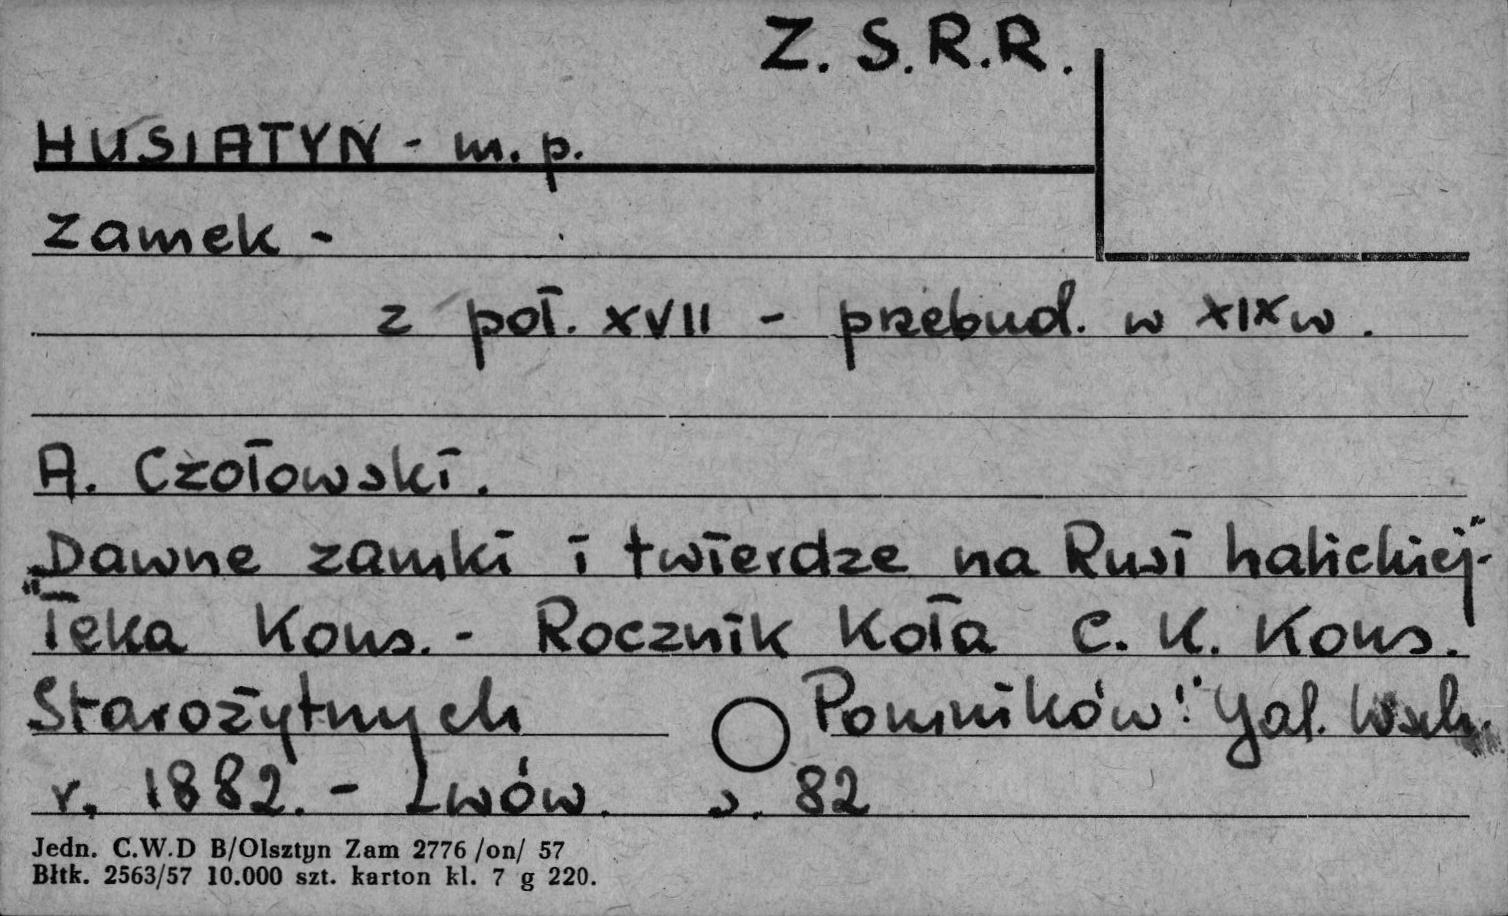 Z. S. R. R.
HUSIATYN - m. p.
Zamek -
z poł. XVII - przebud. w XIX w.
A. Czołowski.
"Dawne zamki i twierdze na Rusi halickiej"-
"Teka Kons. - Rocznik Koła C. K. Kons.
Starożytnych Pomników" Gal. Wsch.
r. 1882. - Lwów. s. 82
Jedn. C.W.D B/Olsztyn Zam 2776 /on/ 57
Błtk. 2563/57 10.000 szt. karton kl. 7 g 220.